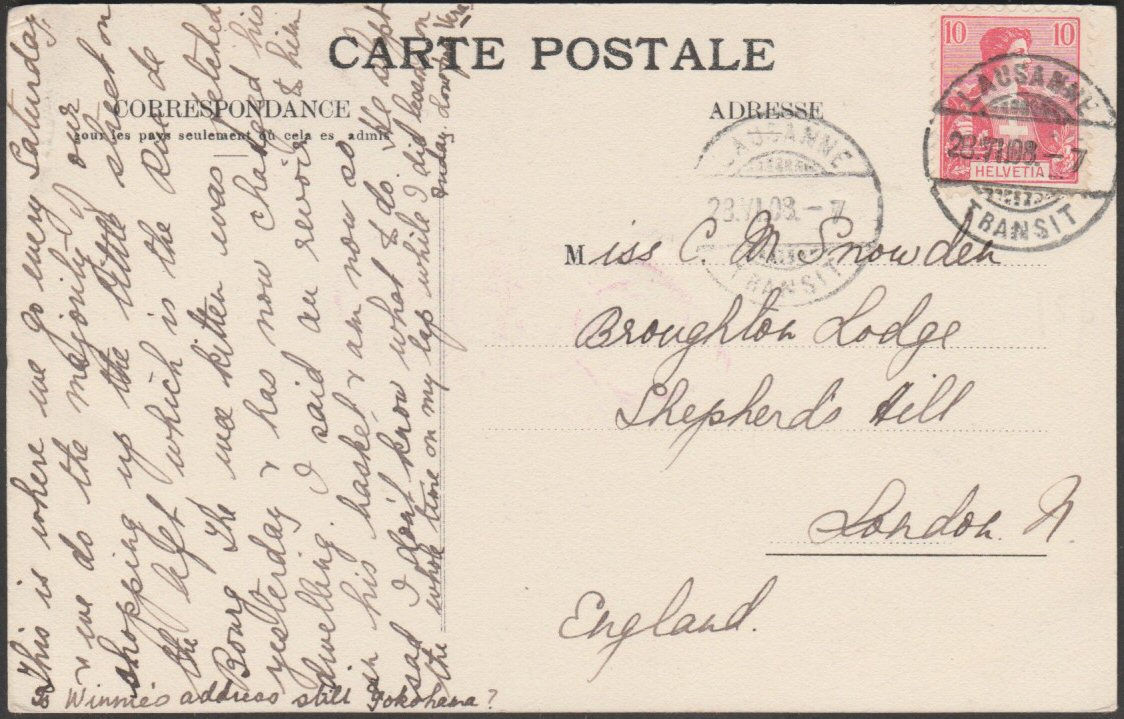 CARTE POSTALE
CORRESPONDANCE
pour les pays seulement où cela es admis
ADRESSE
10 10
HELVETIA
LAUSANNE
23.VI.08.-7
TRANSIT
LAUSANNE
23.VI.08.-7
TRANSIT
Miss C. M. Snowden
Broughton Lodge
Shepherd's Hill
London. N.
England.
This is where we go every Saturday
& we do the majority of our
shopping up the little street on
the left which is the Rue de
Bourg. The wee kitten was fetched
yesterday & has now changed his
dwelling. I said au revoir to him
in his basket & am now so
sad I don't know what to do. He slept
the whole time on my lap while I did lessons on
Friday. Love from
Is Winnie's address still Yokohama?